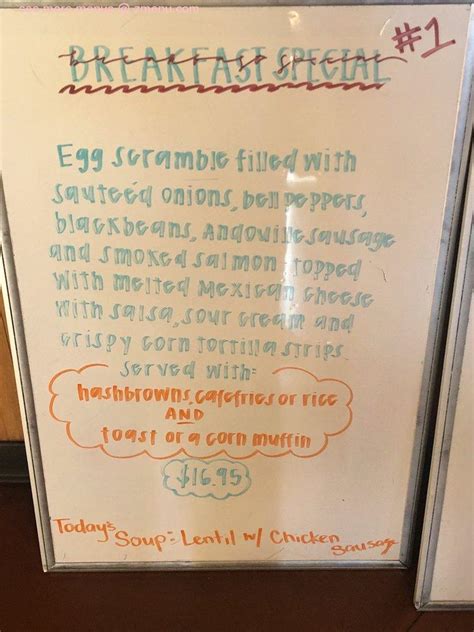 see more menus @ zmenu.com
BREAKFAST SPECIAL #1
Egg scramble filled with
sauteéd onions, bell peppers,
black beans, Andouille sausage
and smoked salmon, topped
with melted Mexican cheese
with salsa, sour cream and
crispy corn tortilla strips.
served with:
hashbrowns, cafefries or rice
AND
toast or a corn muffin
$16.95
Today's
Soup: Lentil w/ Chicken
sausage